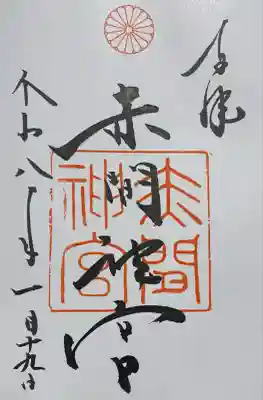 奉拝
赤間神宮
令和八年一月十九日
赤間
神宮